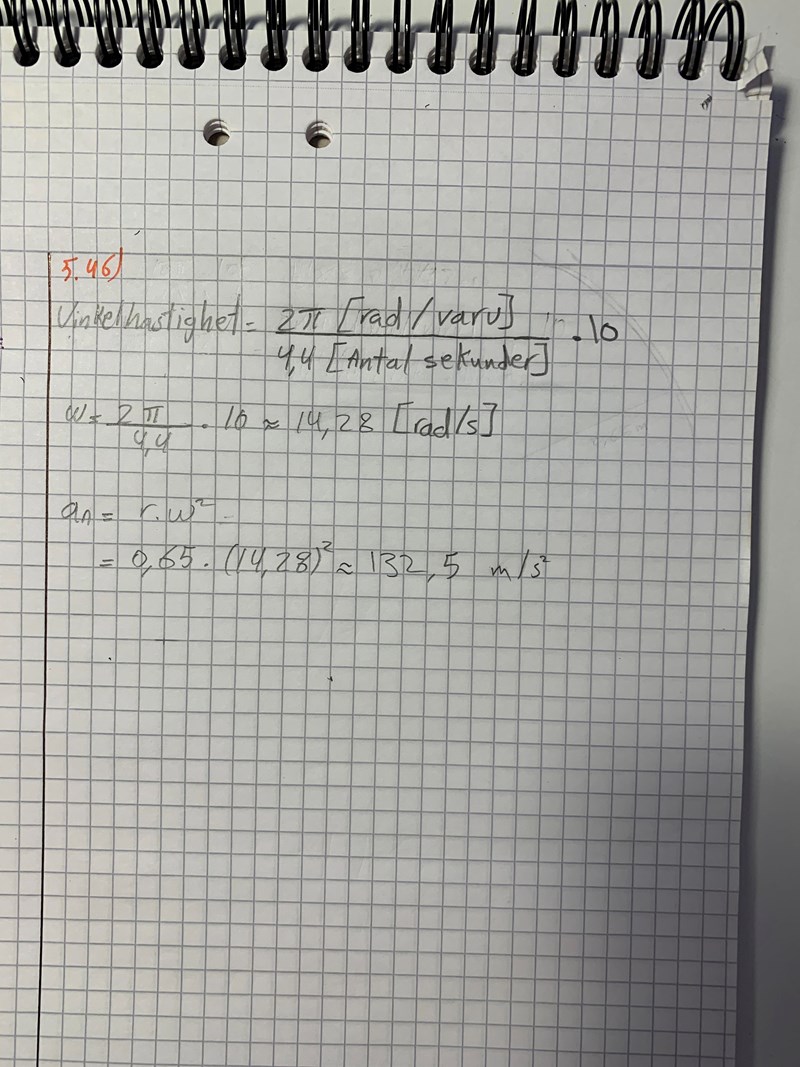 5.46)
Vinkelhastighet = 2π [rad/varv] / 4,4 [Antal sekunder] · 10
ω = 2π / 4,4 · 10 ≈ 14,28 [rad/s]
a_A = r·ω²
= 0,65 · (14,28)² ≈ 132,5 m/s²